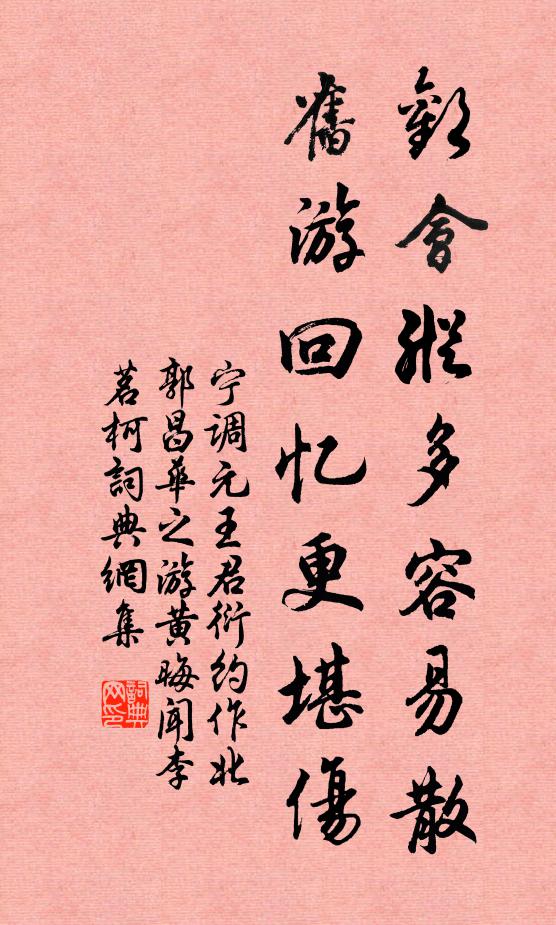 歡會縱多容易散
舊游回忆更堪傷
宁調元王君衍約作北
郭昌華之游黄晦闻李
茗柯詞典網集
詞典网印